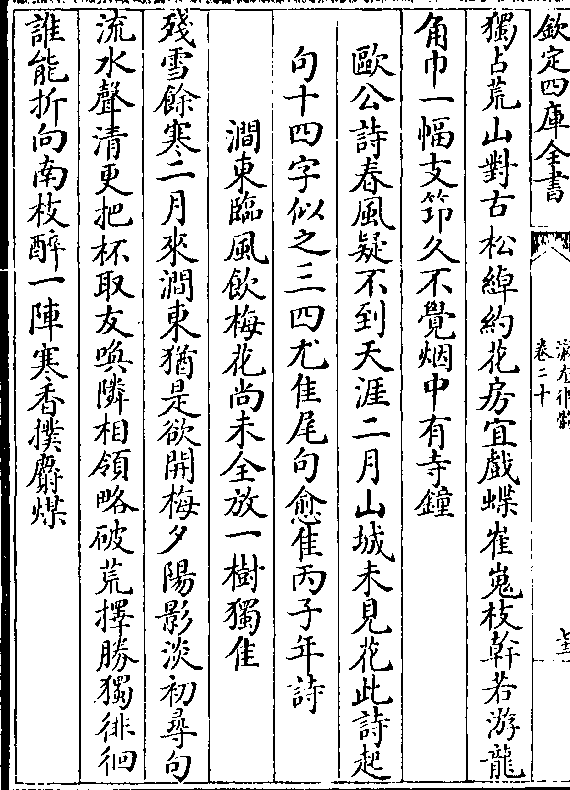 欽定四庫全書
卷二十
獨占荒山對古松綽約花房宜戲蝶崔嵬枝幹若游龍
角巾一幅支笻久不覺烟中有寺鐘
歐公詩春風疑不到天涯二月山城未見花此詩起
句十四字似之三四尤隹尾句愈隹丙子年詩
澗東臨風飲梅花尚未全放一樹獨隹
殘雪餘寒二月來澗東猶是欲開梅夕陽影淡初尋句
流水聲清更把杯取友喚隣相領略破荒擇勝獨徘徊
誰能折向南枝醉一陣寒香撲麝煤